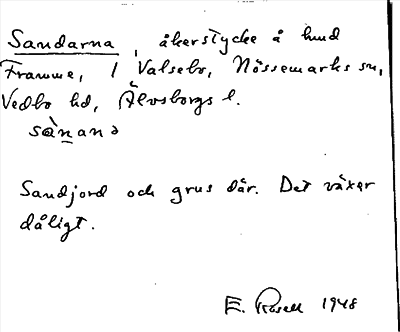 Sandarna, åkerstycke å hmd
Framme, 1 Valsebo, Nössemarks sn,
Vedbo hd, Älvsborgs l.
sànanə
Sandjord och grus där. Det växer
dåligt.
E. Rosell 1948